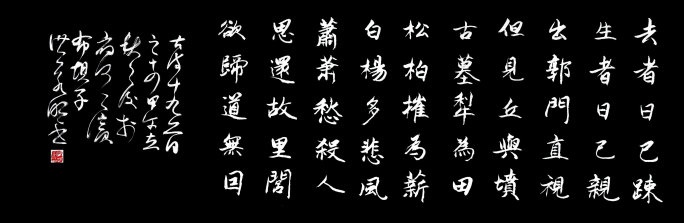 去者日已疎
生者日已親
出郭門直視
但見丘與墳
古墓犁為田
松柏摧為薪
白楊多悲風
蕭蕭愁殺人
思還故里閭
欲歸道無因
古詩十九首
之十四甲午立